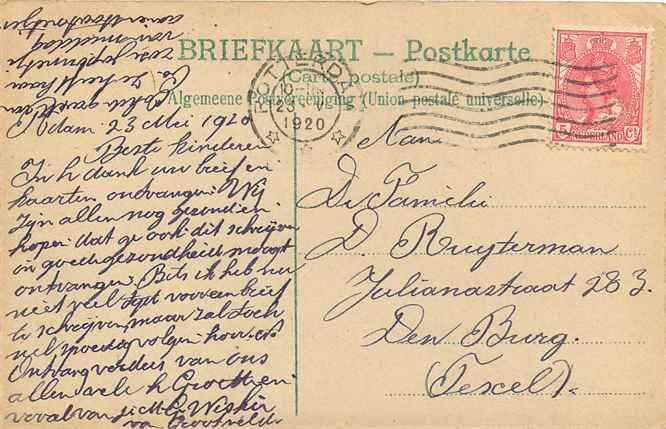 BRIEFKAART — Postkarte
(Carte postale)
Algemeene Postvereeniging (Union postale universelle)
ROTTERDAM
1920
5 NEDERLAND Ct
R'dam 23 Mei 1920
Beste kinderen
In h dank uw brief en
kaarten ontvangen Wij
zijn allen nog gezond en
hopen dat ge ook dit schrijven
in goede gezondheid moogt
ontvangen. Bets ik heb nu
niet veel tyd voor een brief
te schrijven maar zal toch
wel spoedig volgen hoor
Ontvang verders van ons
allen vele h Groeten en
vooral van
van
Aan
De Familie
D. Ruyterman
Julianastraat 283.
Den Burg.
(Texel).